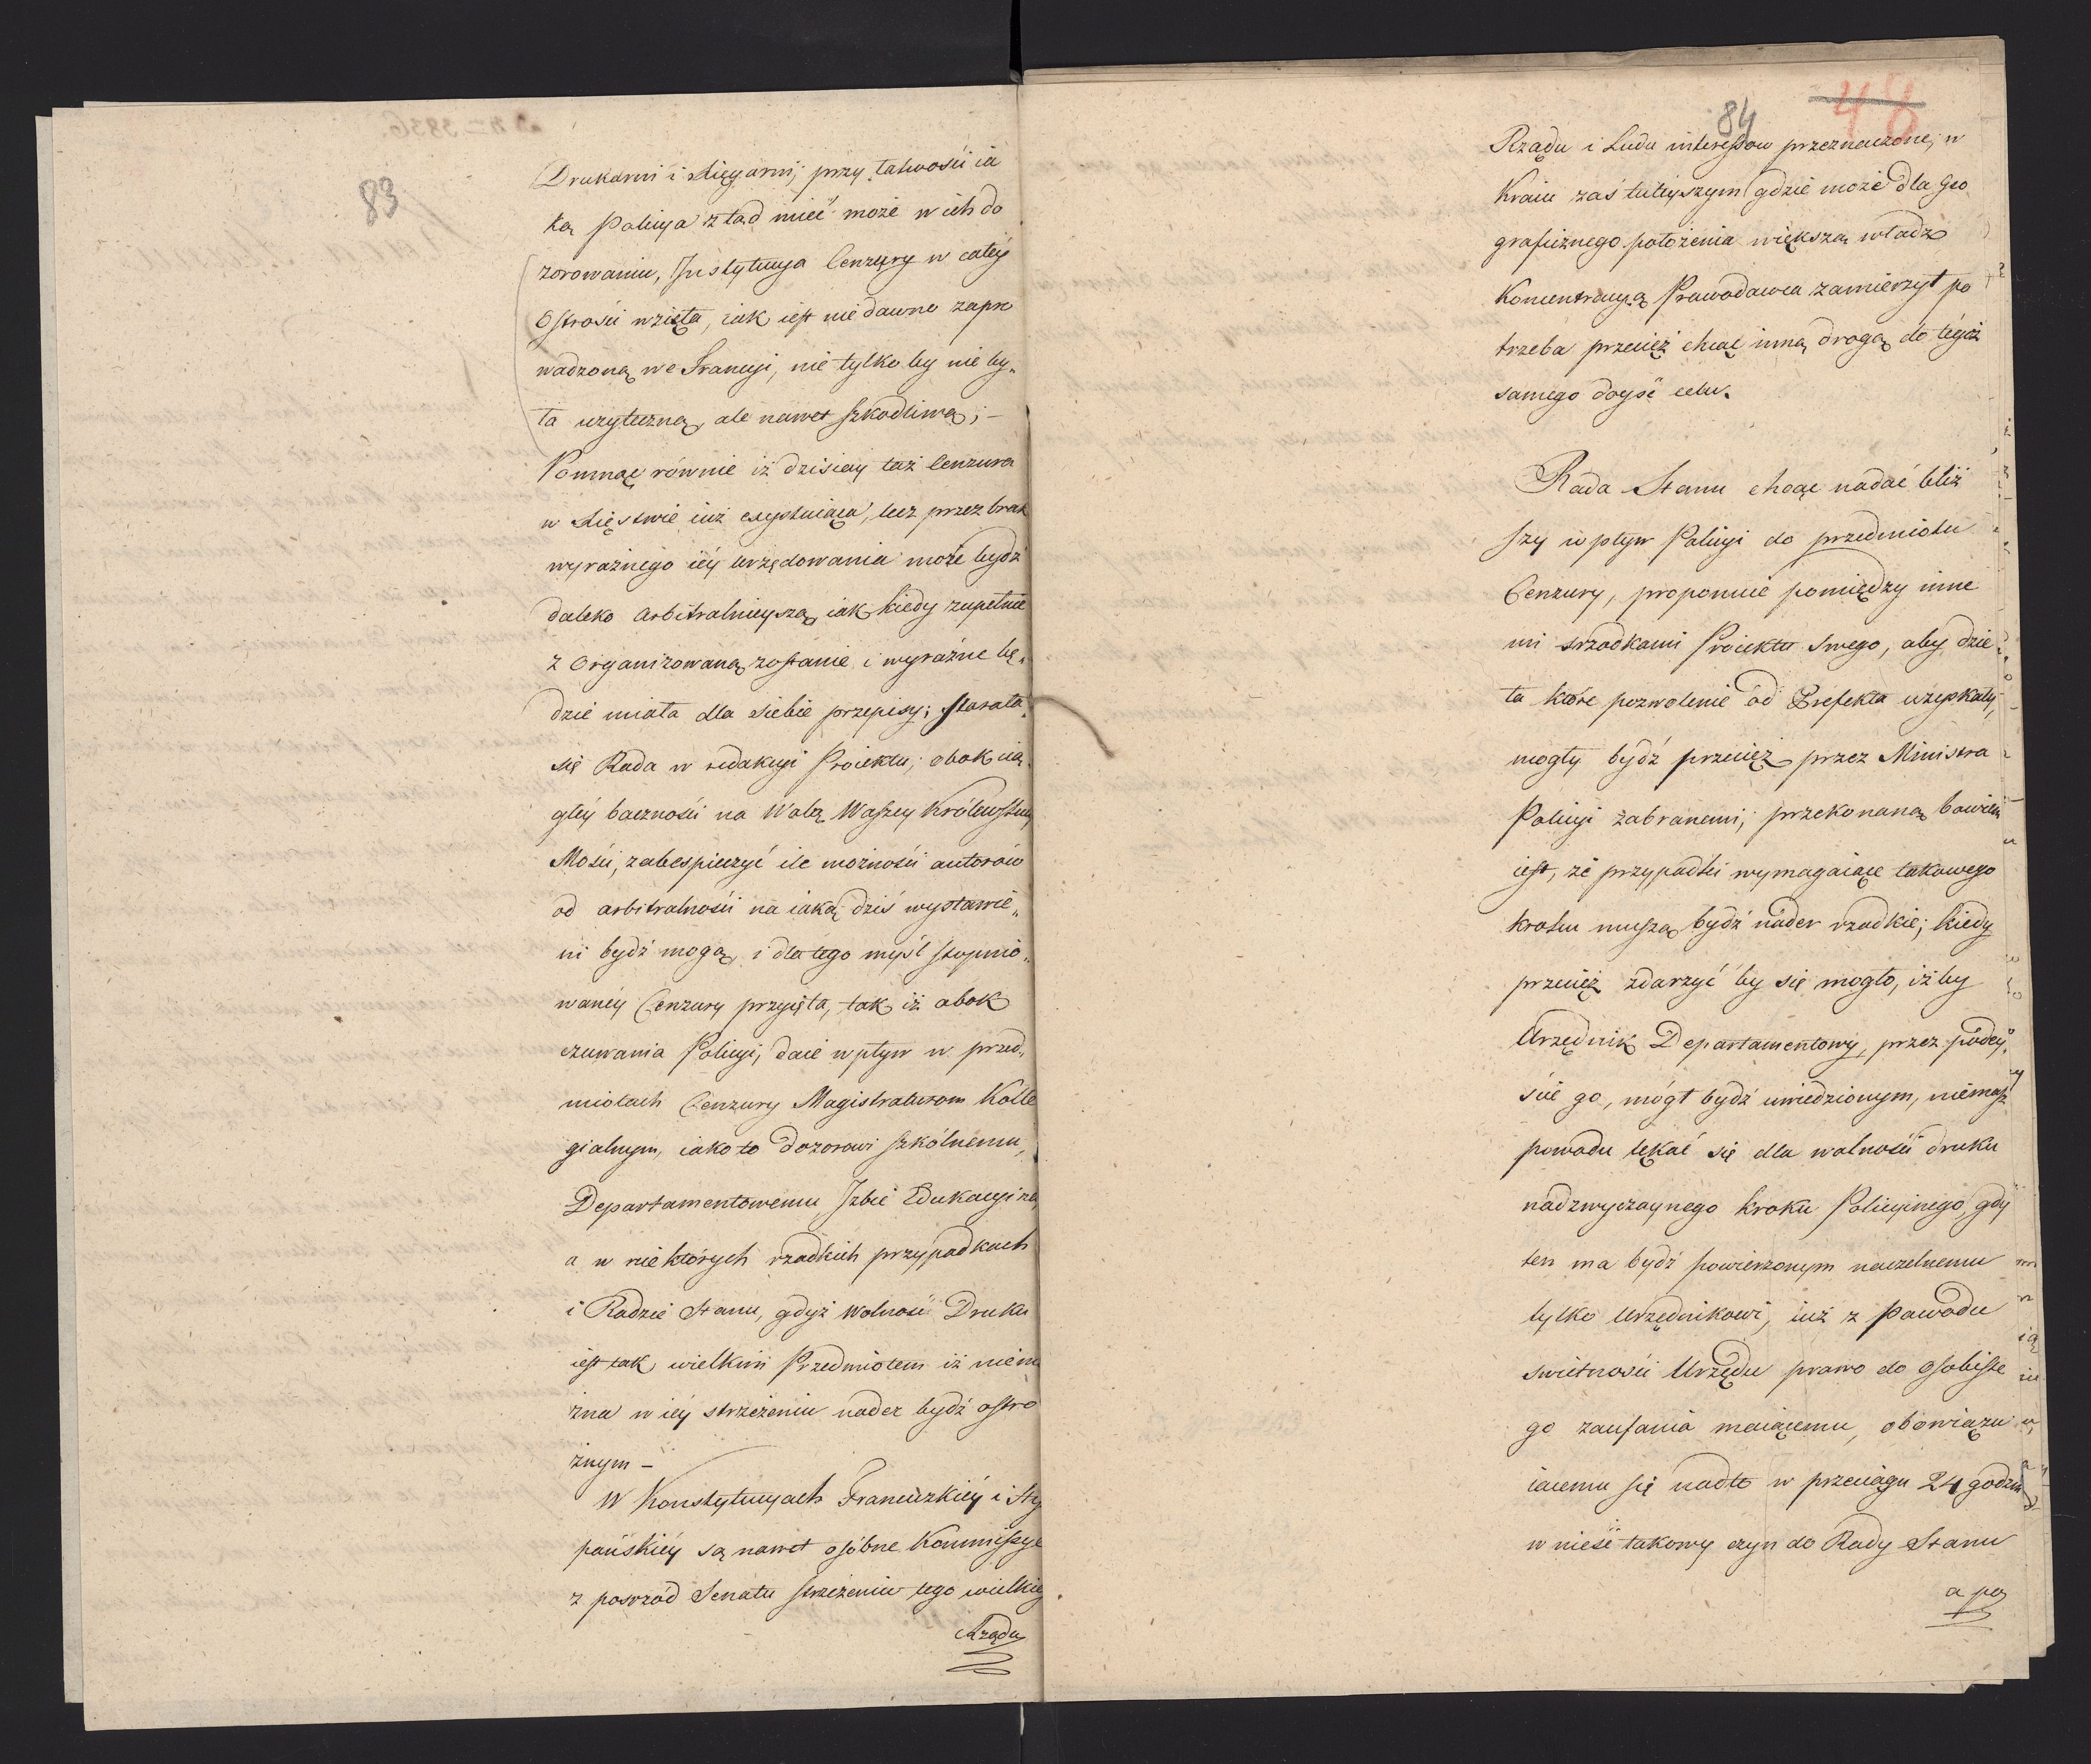 83
Drukarni i Xięgarni; przy łatwości ia
ką Policya ztąd mieć może w ich do
zorowaniu, Instytucya Cenzury w całey
Ostrości wzięta, iak iest niedawno zapro
wadzoną we Francyi, nie tylko by nie by„
ła użyteczną, ale nawet szkodliwą; –
Pomnąc równie iż dzisiay taż Cenzura
w Xięstwie iuż exystuiąca, lecz przez brak
wyraźnego iéy urzędowania może bydź
daleko arbitralnieyszą, iak kiedy zupełnie
z organizowaną zostanie i wyraźne bę„
dzie miała dla siebie przepisy; starała
się Rada w redakcyi Proiektu, obok cią
głéy baczności na Wolą Waszey Królewskiey
Mości, zabespieczyć ile możności autorów
od arbitralności na iaką dziś wystawie„
ni bydź mogą, i dla tego myśl stopnio„
wanéy Cenzury przyięła, tak iż obok
czuwania Policyi, daie wpływ w przed„
miotach Cenzury Magistraturom Kolle
gialnym, iako to Dozorowi szkólnemu,
Departamentowemu Izbie Edukacyine,
a w niektórych rzadkich przypadkach
i Radzie Stanu, gdyż Wolność Druku
iest tak wielkim Przedmiotem iż niemo
żna w iéy strzeżeniu nader bydź ostro
żnym –
W Konstytucyach Francuzkiéy i Hisz
pańskiéy są nawet osóbne Kommissye
z posrzód Senatu strzeżeniu tego wielkieg
Rządu
84
48
Rządu i Ludu interessow przeznaczone; w
Kraiu zaś tuteyszym gdzie może dla geo
graficznego położenia większą władz
Koncentracyą Prawodawca zamierzył po
trzeba przecież chcąc inną drogą do tégoż
samego doyść celu.
Rada Stanu chcąc nadać bliż
szy wpływ Policyi do przedmiotu
Cenzury, proponuie pomiędzy inne
mi srzodkami Proiektu swego, aby dzie
ła które pozwolenie od Prefekta uzyskały,
mogły bydź przecież przez Ministra
Policyi zabranemi; przekonaną bowiem
iest, że przypadki wymagaiące takowego
kroku muszą bydź nader rzadkie; kiedy
przecież zdarzyć by się mogło, iżby
Urzędnik Departamentowy, przez podey„
ście go, mógł bydź uwiedzionym, niemasz
powodu lękać się dla wolności druku
nadzwyczaynego kroku Policyinego, gdy
ten ma bydź powierzonym naczelnemu
tylko Urzędnikowi, iuż z Powodu
świetności Urzędu prawo do osobiste
go zaufania maiącemu, obowiązu
iącemu się nadto w przeciągu 24 godzin
wnieść takowy czyn do Rady Stanu
a po